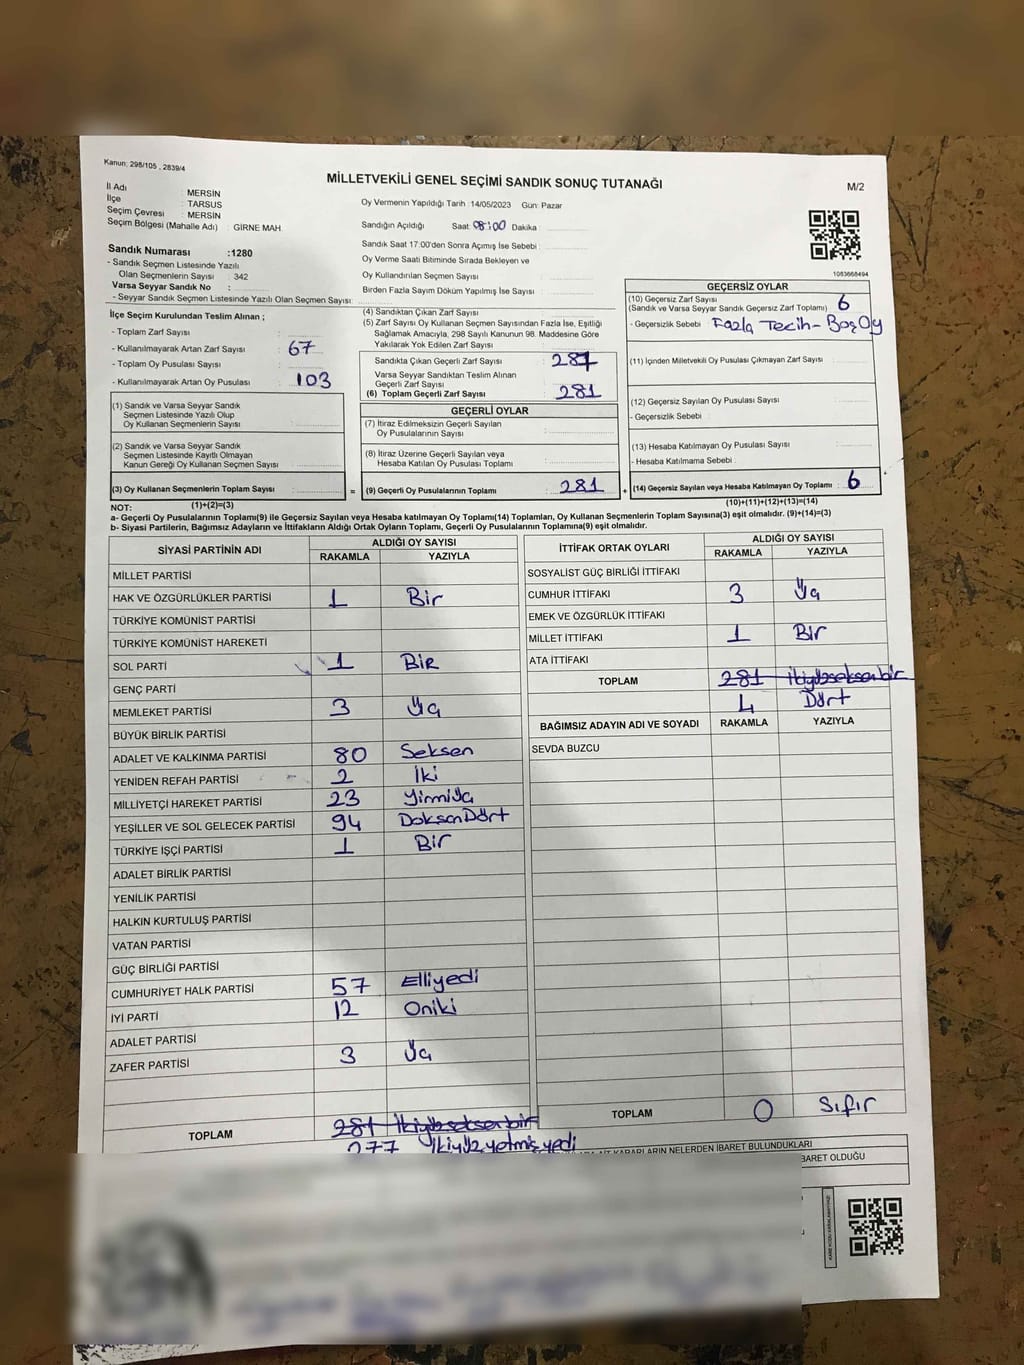 Kanun: 298/105 , 2839/4
MİLLETVEKİLİ GENEL SEÇİMİ SANDIK SONUÇ TUTANAĞI
M/2
İl Adı : MERSİN
İlçe : TARSUS
Seçim Çevresi : MERSİN
Seçim Bölgesi (Mahalle Adı) : GİRNE MAH.
Sandık Numarası :1280
- Sandık Seçmen Listesinde Yazılı
Olan Seçmenlerin Sayısı : 342
Varsa Seyyar Sandık No :
- Seyyar Sandık Seçmen Listesinde Yazılı Olan Seçmen Sayısı:
Oy Vermenin Yapıldığı Tarih :14/05/2023 Gün: Pazar
Sandığın Açıldığı Saat: 08:00 Dakika :
Sandık Saat 17:00'den Sonra Açımış İse Sebebi :
Oy Verme Saati Bitiminde Sırada Bekleyen ve
Oy Kullandırılan Seçmen Sayısı :
Birden Fazla Sayım Döküm Yapılmış İse Sayısı :
1083668494
İlçe Seçim Kurulundan Teslim Alınan ;
- Toplam Zarf Sayısı :
- Kullanılmayarak Artan Zarf Sayısı : 67
- Toplam Oy Pusulası Sayısı :
- Kullanılmayarak Artan Oy Pusulası : 103
(1) Sandık ve Varsa Seyyar Sandık
Seçmen Listesinde Yazılı Olup
Oy Kullanan Seçmenlerin Sayısı :
(2) Sandık ve Varsa Seyyar Sandık
Seçmen Listesinde Kayıtlı Olmayan
Kanun Gereği Oy Kullanan Seçmen Sayısı :
(3) Oy Kullanan Seçmenlerin Toplam Sayısı :
(1)+(2)=(3)
(4) Sandıktan Çıkan Zarf Sayısı :
(5) Zarf Sayısı Oy Kullanan Seçmen Sayısından Fazla İse, Eşitliği
Sağlamak Amacıyla, 298 Sayılı Kanunun 98. Maddesine Göre
Yakılarak Yok Edilen Zarf Sayısı :
Sandıkta Çıkan Geçerli Zarf Sayısı : 281
Varsa Seyyar Sandıktan Teslim Alınan
Geçerli Zarf Sayısı :
(6) Toplam Geçerli Zarf Sayısı : 281
GEÇERLİ OYLAR
(7) İtiraz Edilmeksizin Geçerli Sayılan
Oy Pusulalarının Sayısı :
(8) İtiraz Üzerine Geçerli Sayılan veya
Hesaba Katılan Oy Pusulası Toplamı :
= (9) Geçerli Oy Pusulalarının Toplamı : 281 +
GEÇERSİZ OYLAR
(10) Geçersiz Zarf Sayısı
(Sandık ve Varsa Seyyar Sandık Geçersiz Zarf Toplamı) : 6
- Geçersizlik Sebebi : Fazla Tecih- Boş Oy
(11) İçinden Milletvekili Oy Pusulası Çıkmayan Zarf Sayısı :
(12) Geçersiz Sayılan Oy Pusulası Sayısı :
- Geçersizlik Sebebi :
(13) Hesaba Katılmayan Oy Pusulası Sayısı :
- Hesaba Katılmama Sebebi :
(14) Geçersiz Sayılan veya Hesaba Katılmayan Oy Toplamı : 6
(10)+(11)+(12)+(13)=(14)
NOT:
a- Geçerli Oy Pusulalarının Toplamı(9) ile Geçersiz Sayılan veya Hesaba katılmayan Oy Toplamı(14) Toplamları, Oy Kullanan Seçmenlerin Toplam Sayısına(3) eşit olmalıdır. (9)+(14)=(3)
b- Siyasi Partilerin, Bağımsız Adayların ve İttifakların Aldığı Ortak Oyların Toplamı, Geçerli Oy Pusulalarının Toplamına(9) eşit olmalıdır.
SİYASİ PARTİNİN ADI ALDIĞI OY SAYISI
RAKAMLA YAZIYLA
MİLLET PARTİSİ
HAK VE ÖZGÜRLÜKLER PARTİSİ 1 Bir
TÜRKİYE KOMÜNİST PARTİSİ
TÜRKİYE KOMÜNİST HAREKETİ
SOL PARTİ 1 Bir
GENÇ PARTİ
MEMLEKET PARTİSİ 3 Üç
BÜYÜK BİRLİK PARTİSİ
ADALET VE KALKINMA PARTİSİ 80 Seksen
YENİDEN REFAH PARTİSİ 2 İki
MİLLİYETÇİ HAREKET PARTİSİ 23 Yirmiüç
YEŞİLLER VE SOL GELECEK PARTİSİ 94 DoksanDört
TÜRKİYE İŞÇİ PARTİSİ 1 Bir
ADALET BİRLİK PARTİSİ
YENİLİK PARTİSİ
HALKIN KURTULUŞ PARTİSİ
VATAN PARTİSİ
GÜÇ BİRLİĞİ PARTİSİ
CUMHURİYET HALK PARTİSİ 57 Elliyedi
İYİ PARTİ 12 Oniki
ADALET PARTİSİ
ZAFER PARTİSİ 3 Üç
TOPLAM 281 ikiyüzseksenbir
277 ikiyüzyetmişyedi
İTTİFAK ORTAK OYLARI ALDIĞI OY SAYISI
RAKAMLA YAZIYLA
SOSYALİST GÜÇ BİRLİĞİ İTTİFAKI
CUMHUR İTTİFAKI 3 Üç
EMEK VE ÖZGÜRLÜK İTTİFAKI
MİLLET İTTİFAKI 1 Bir
ATA İTTİFAKI
TOPLAM 281 ikiyüzseksenbir
4 Dört
BAĞIMSIZ ADAYIN ADI VE SOYADI RAKAMLA YAZIYLA
SEVDA BUZCU
TOPLAM 0 Sıfır
KARARLARIN NELERDEN İBARET BULUNDUKLARI
İBARET OLDUĞU